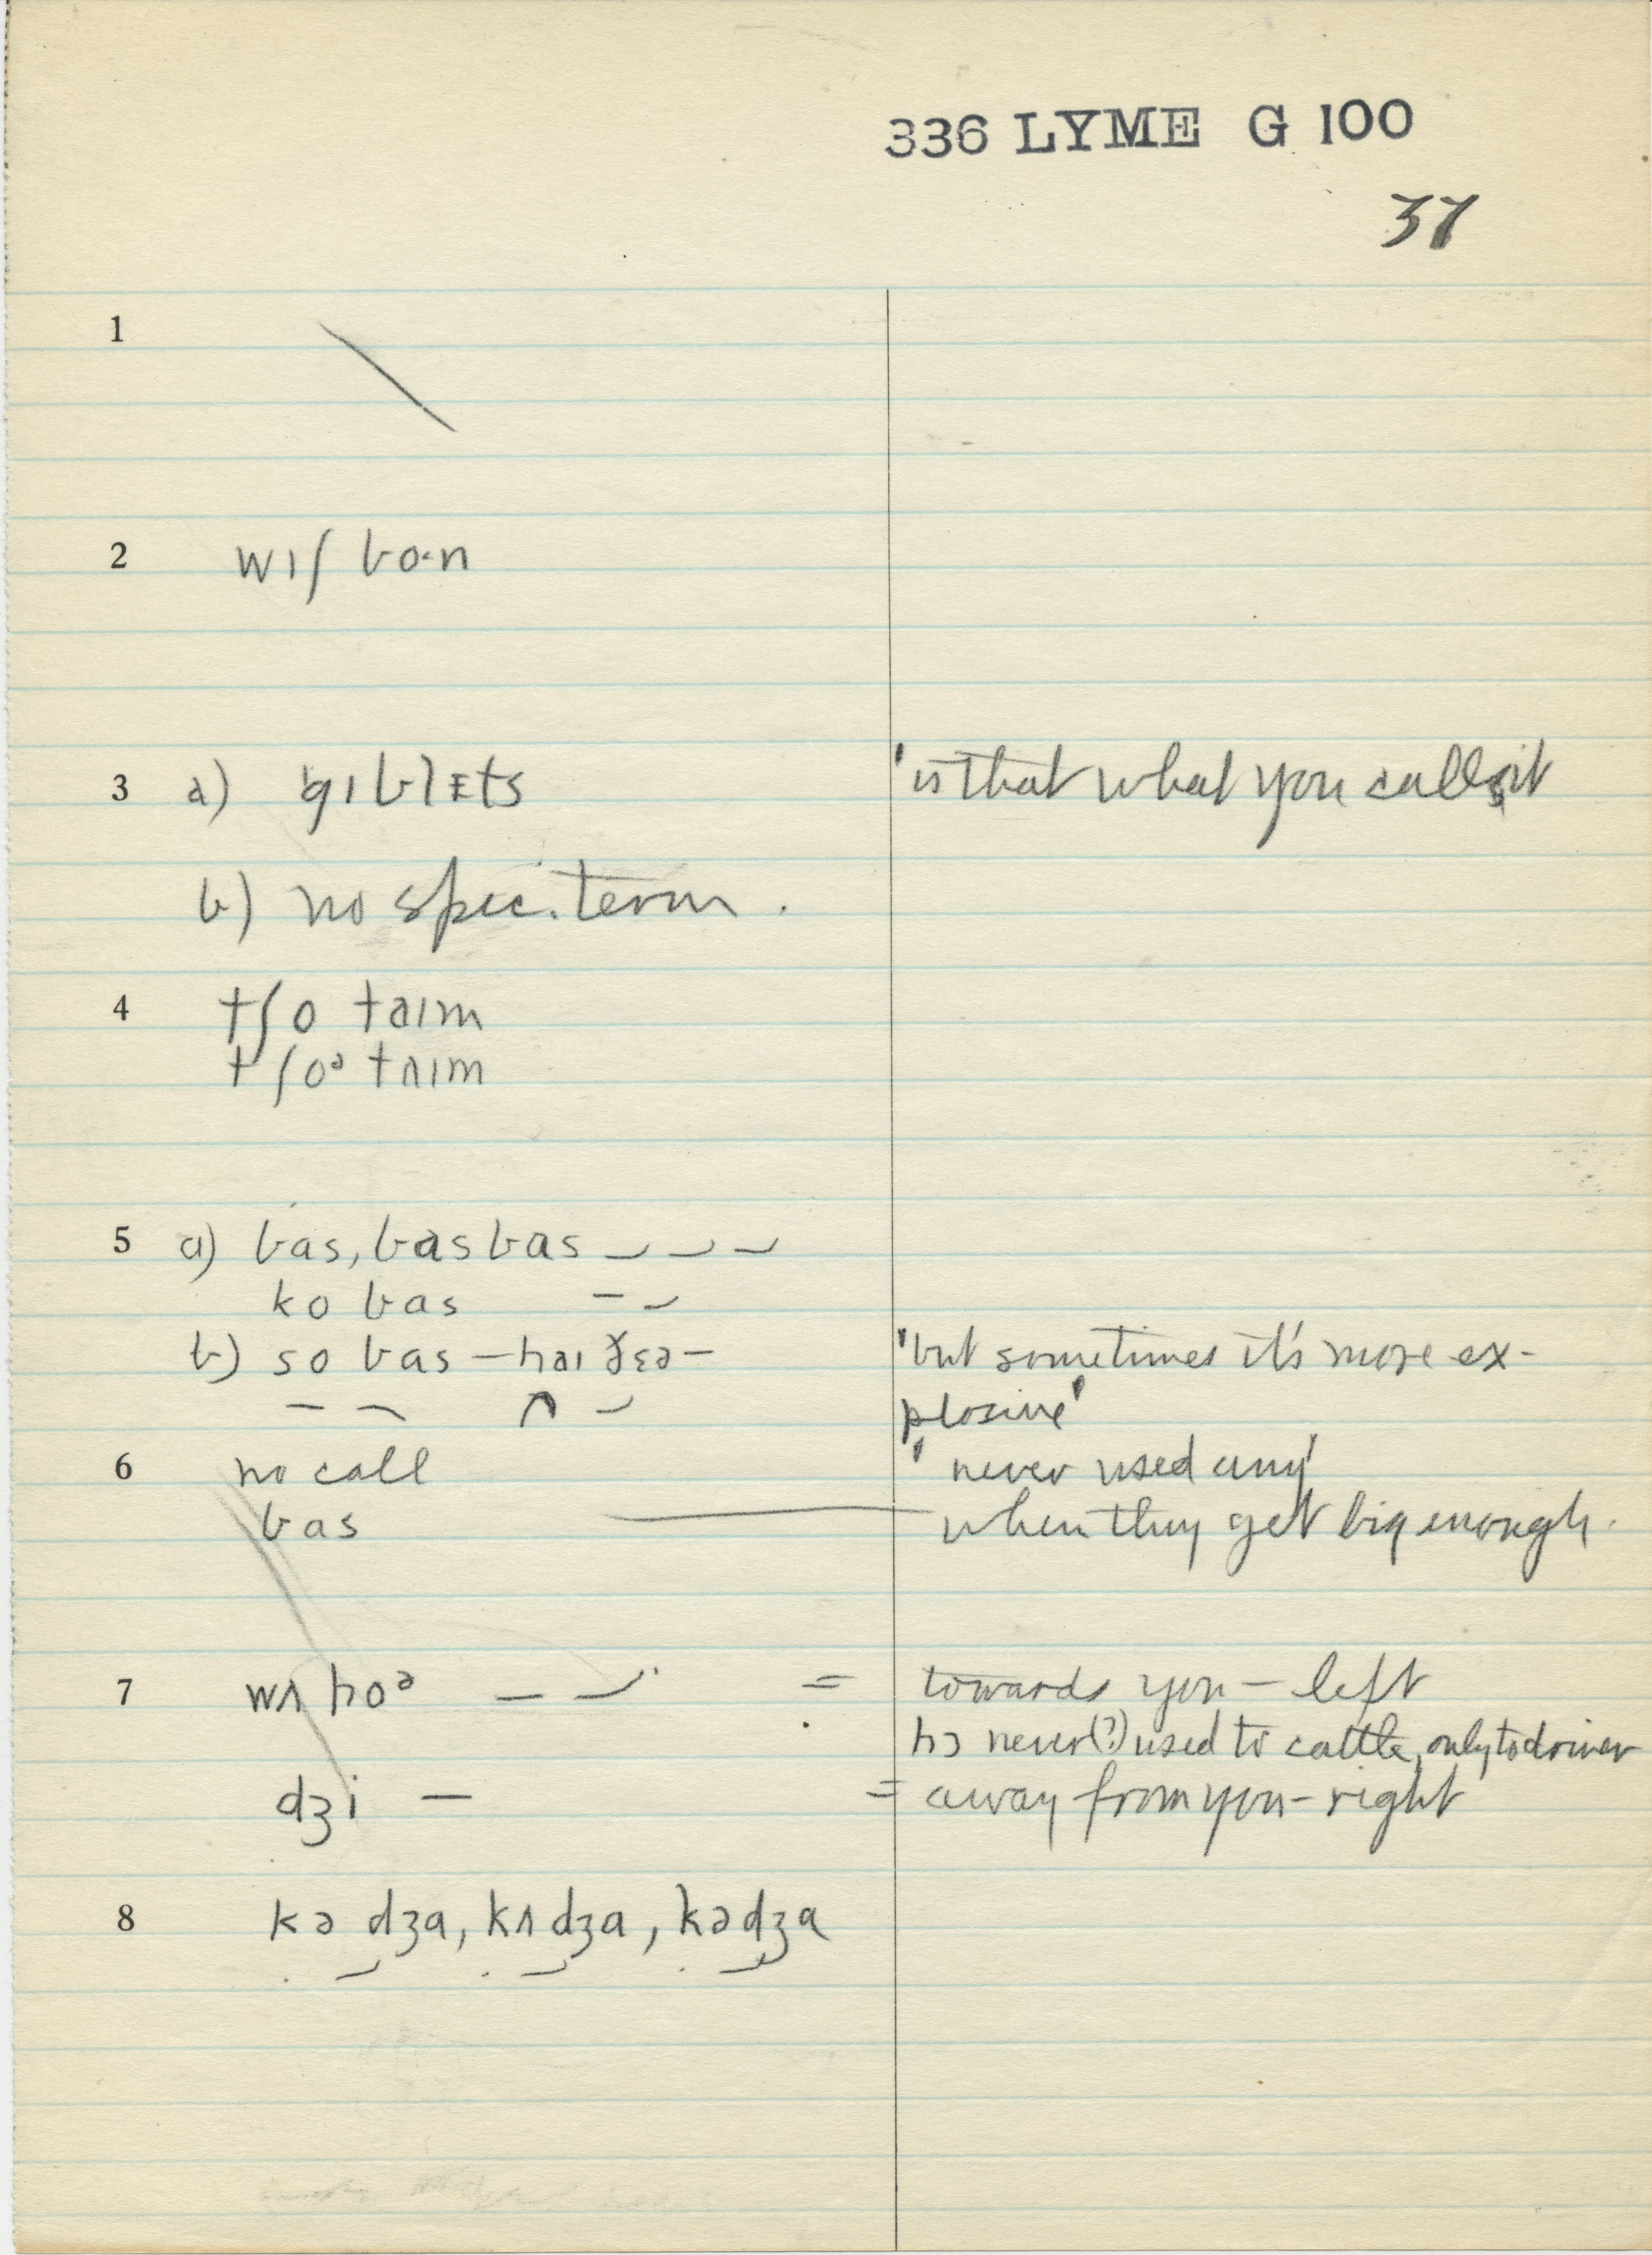 336 LYME G 100
37
1
2 wɪʃ bo·n
3 a) gɪblɛts 'is that what you call it
b) no spec. term.
4 tʃo taɪm
tʃoᵊ tʌɪm
5 a) bas, bas bas
ko bas
b) so bas – haɪ ðɛə – 'but sometimes it's more ex-
plosive'
6 no call 'never used any'
bas — when they get big enough.
7 wʌ hoᵊ = towards you – left
hɔ never(?) used to cattle, only to driver
dʒi – = away from you – right
8 kə dʒa, kʌ dʒa, kə dʒa